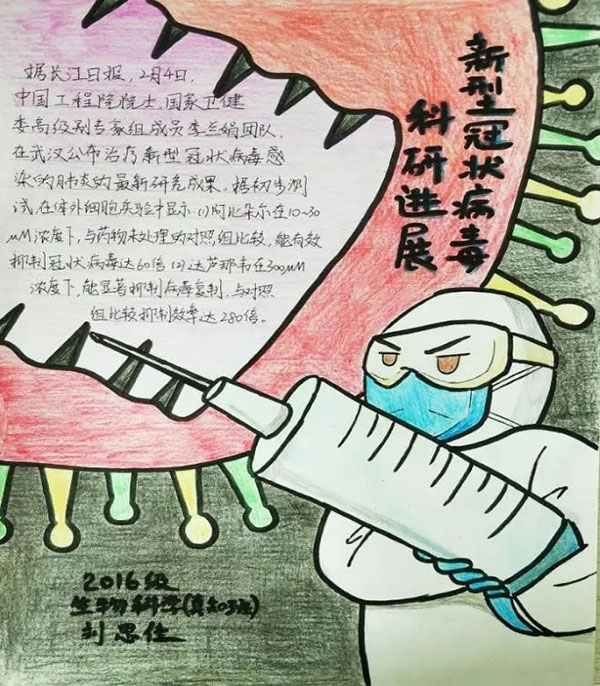 新型冠状病毒
科研进展
据长江日报，2月4日，
中国工程院院士、国家卫健
委高级别专家组成员李兰娟团队，
在武汉公布治疗新型冠状病毒感
染的肺炎的最新研究成果。据初步测
试，在体外细胞实验中显示：(1)阿比朵尔在10~30
μM浓度下，与药物未处理的对照组比较，能有效
抑制冠状病毒达60倍；(2)达芦那韦在300μM
浓度下，能显著抑制病毒复制，与对照
组比较抑制效率达280倍。
2016级
生物科学(真知班)
刘思佳